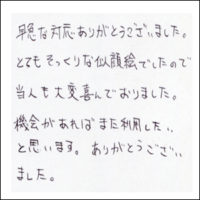 早急な対応ありがとうございました。
とてもそっくりな似顔絵でしたので
当人も大変喜んでおりました。
機会があればまた利用したい
と思います。ありがとうござい
ました。